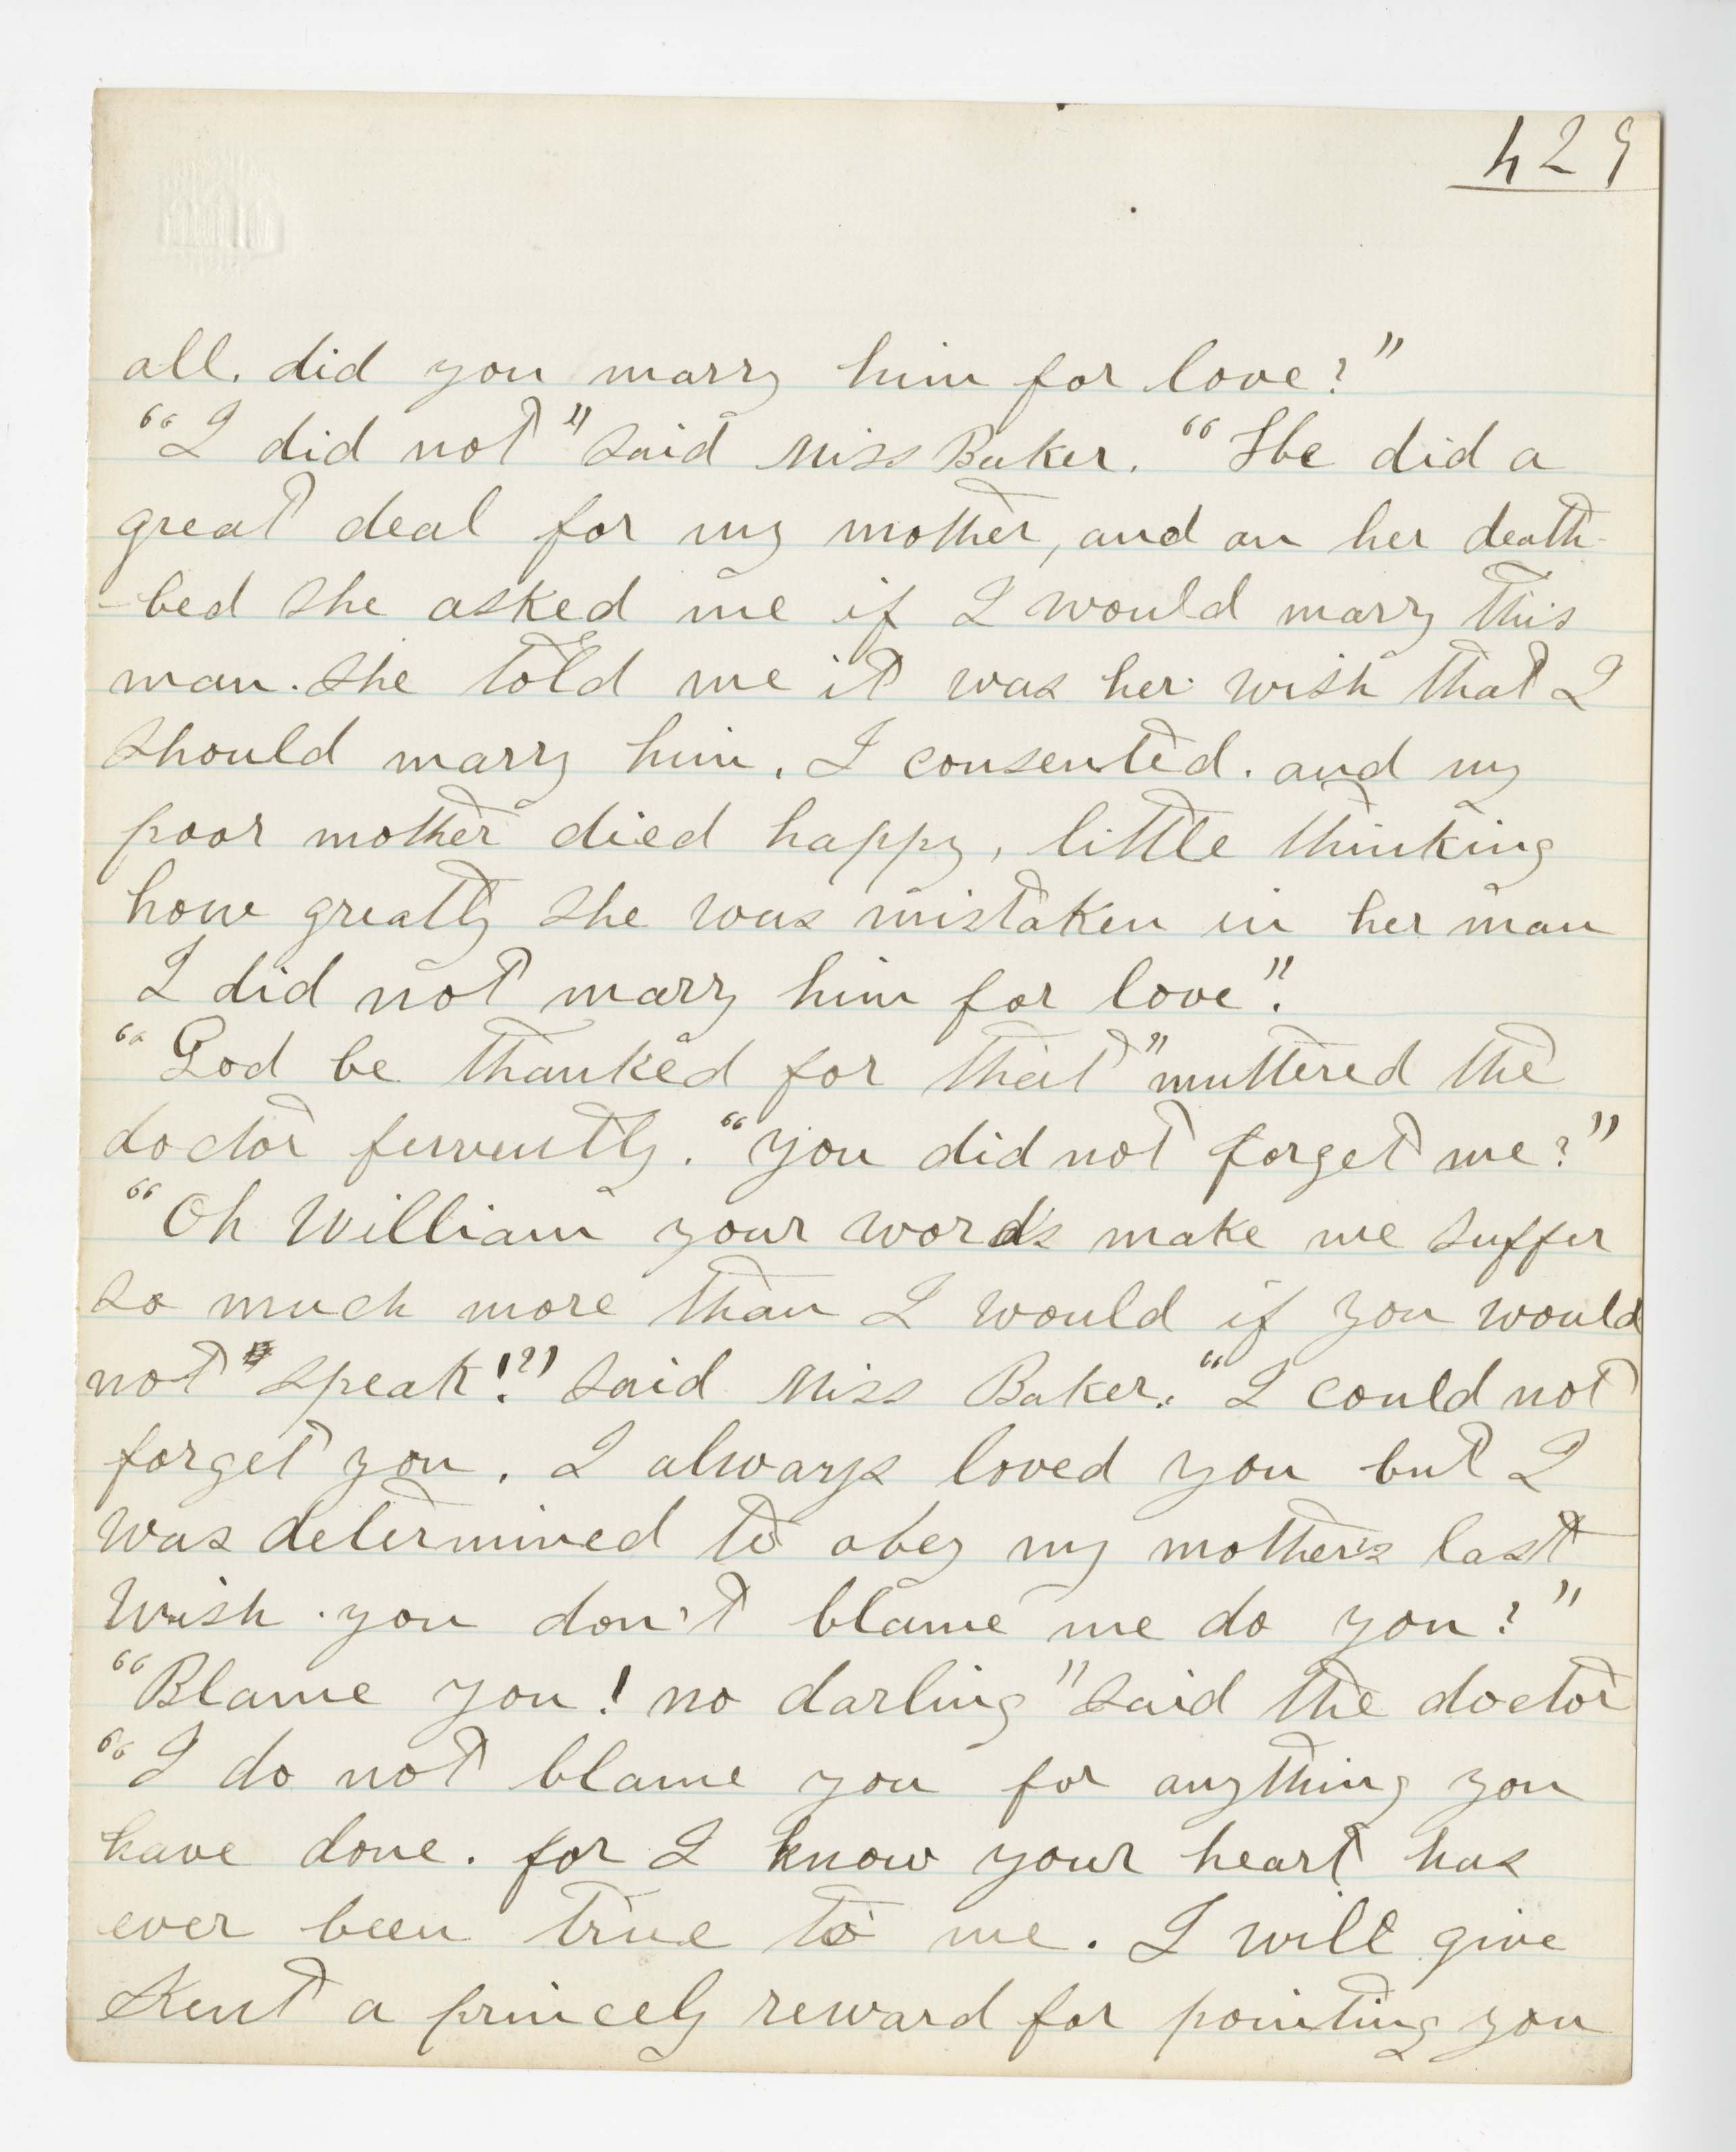 429
all. did you marry him for love?"
"I did not" said Miss Baker. "He did a
great deal for my mother, and on her death-
-bed she asked me if I would marry this
man. She told me it was her wish that I
should marry him. I consented. and my
poor mother died happy, little thinking
how greatly she was mistaken in her man
I did not marry him for love".
"God be thanked for that" muttered the
doctor fervently. "you did not forget me?"
"Oh William your words make me suffer
so much more than I would if you would
not speak!" said Miss Baker. "I could not
forget you. I always loved you but I
was determined to obey my mother's last
wish. you don't blame me do you?"
"Blame you! no darling" said the doctor
"I do not blame you for anything you
have done. for I know your heart has
ever been true to me. I will give
Kent a princely reward for pointing you